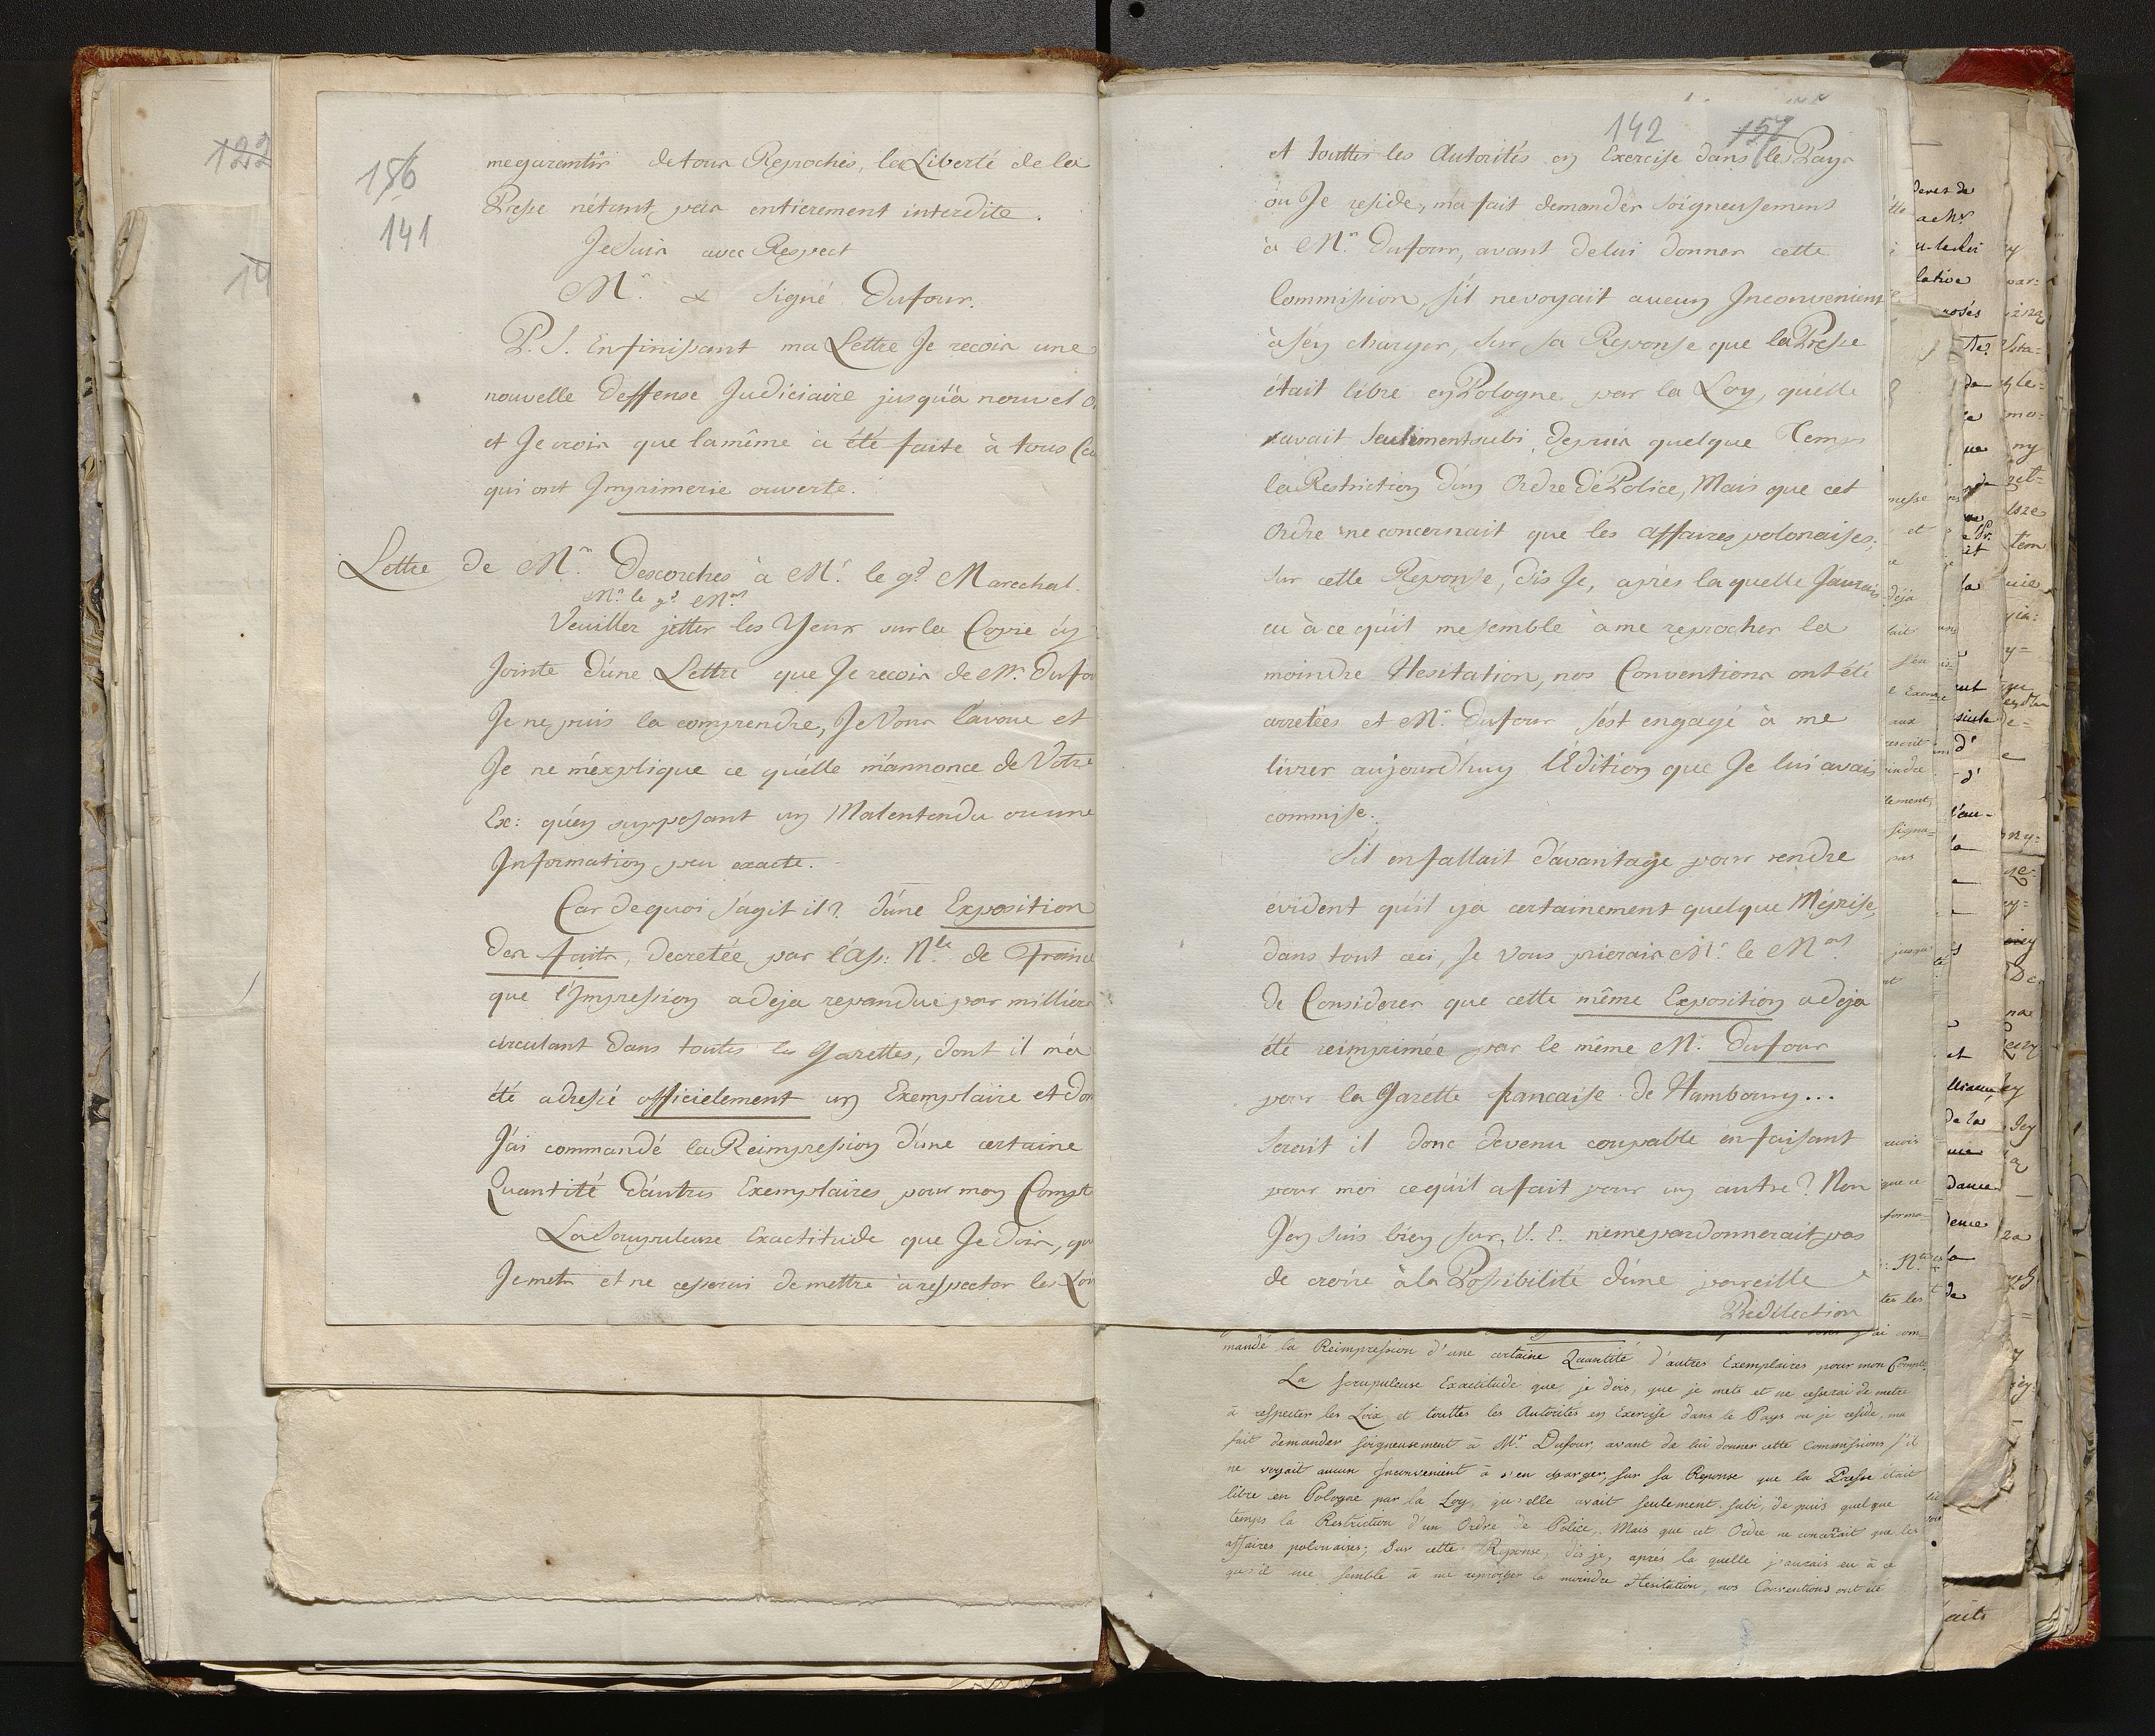 122
156
141
me garantir de tous Reproches, la Liberté de la
Presse n'étant pas entierement interdite.
Je Suis avec Respect
Mr. & Signé Dufour.
P. S. En finissant ma Lettre Je recois une
nouvelle deffense Judiciaire jusqu'à nouvel
et Je crois que la même a été faite à tous
qui ont Imprimerie ouverte.
Lettre de Mr. Descorches à Mr. le gd. Marechal.
Mr. le gd. Mal.
Veuillez jetter les Yeux sur la Copie cy
Jointe d'une Lettre que Je recois de Mr. Dufou
Je ne puis la comprendre, Je Vous l'avoue et
Je ne m'explique ce qu'elle m'annonce de Votre
Ex: qu'en supposant un Malentendu ou une
Information peu exacte.
Car de quoi s'agit il? d'une Exposition
des faits, decretée par l'Ass: Nle. de France
que l'Impression a deja repandue par milliers
circulant dans toutes les Gazettes, dont il m'a
été adressé officielement un Exemplaire et don
J'ai commandé la Reimpression d'une certaine
Quantité d'autres Exemplaires pour mon Compt
La Scrupuleuse Exactitude que Je dois, que
Je mets et ne cesserai de mettre à respecter les Loix
142 157
et touttes les Autorités en Exercise dans les Pays
où Je reside, m'a fait demander soigneusement
à Mr. Dufour, avant de lui donner cette
Commission, s'il ne voyait aucun Inconvenient
à s'en charger, sur sa Reponse que la Presse
était libre en Pologne par la Loy, qu'elle
avait seulement subi depuis quelque Temps
la Restriction d'un Ordre de Police, Mais que cet
Ordre ne concernait que les affaires polonaises;
sur cette Reponse, dis Je, après laquelle J'aurais
eu à ce qu'il me semble à me reprocher la
moindre Hesitation, nos Conventions ont été
arretées et Mr. Dufour s'est engagé à me
livrer aujourd'huy l'Edition que Je lui avais
commise.
S'il en fallait d'avantage pour rendre
évident qu'il y a certainement quelque Méprise,
dans tout ceci, Je Vous prierais Mr. le Mal.
de Considerer que cette même Exposition a deja
été reimprimée par le même Mr. Dufour
pour la Gazette francaise de Hambourg...
Serait il donc devenu coupable en faisant
pour moi ce qu'il a fait pour un autre? Non
J'en suis bien sur, V. E. ne me pardonnerait pas
de croire à la Possibilité d'une pareille
Predilection
mandé la Reimpression d'une certaine Quantité d'autres Exemplaires pour mon Compte.
La scrupuleuse Exactitude que je dois, que je mets et ne cesserai de metre
à respecter les Loix et touttes les Autorités en Exercise dans le Pays ou je reside, ma
fait demander soigneusement à Mr. Dufour, avant de lui donner cette Commissions s'il
ne voyait aucun Inconvenient à s'en charger, sur sa Reponse que la Presse était
libre en Pologne par la Loy, qu'elle avait seulement subi, de puis quelque
temps la Restriction d'un Ordre de Police, Mais que cet Ordre ne concernait que les
affaires polonaises; Sur cette Reponse, dis je, aprés la quelle j'aurais eu à ce
qu'il me semble à me reprocher la moindre Hesitation, nos Conventions ont été